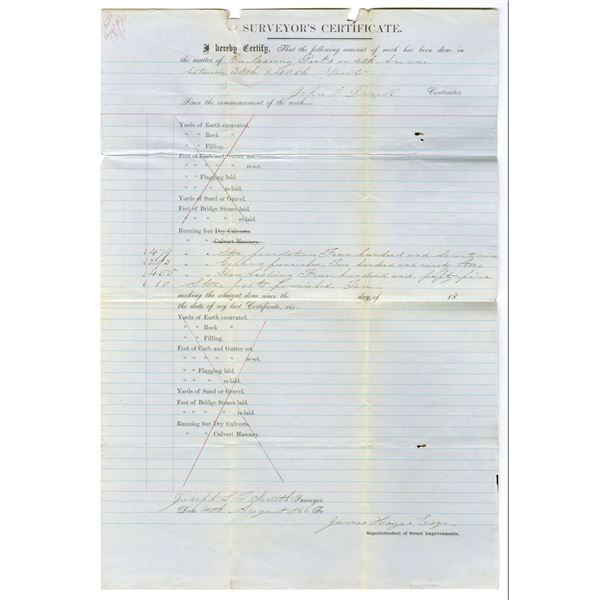 SURVEYOR'S CERTIFICATE.
I hereby Certify, That the following amount of work has been done in
the matter of Enclosing Parks on 4th Avenue
between 38th & 40th
John
Contractor
Since the commencement of the work
Yards of Earth excavated.
" " Rock "
" " Filling.
Feet of Curb and Gutter set.
" " " " " re-set.
" " Flagging laid.
" " " re-laid.
Yards of Sand or Gravel.
Feet of Bridge Stones laid
" " " " re-laid.
Running feet Dry Culverts.
" " Culvert Masonry.
479 " " Stone foundation Four hundred and Seventy nine
" " Coping furnished Two hundred and
455 " " Iron Railing Four hundred and fifty five
10 Stone posts furnished Ten
making the amount done since the day of 18
the date of my last Certificate, viz:
Yards of Earth excavated.
" " Rock "
" " Filling.
Feet of Curb and Gutter set.
" " " " " re-set.
" " Flagging laid.
" " " re-laid.
Yards of Sand or Gravel.
Feet of Bridge Stones laid.
" " " " re-laid.
Running feet Dry Culverts.
" " Culvert Masonry.
Joseph Smith Surveyor.
Date August 1866 To
James Esqr
Superintendent of Street Improvements.